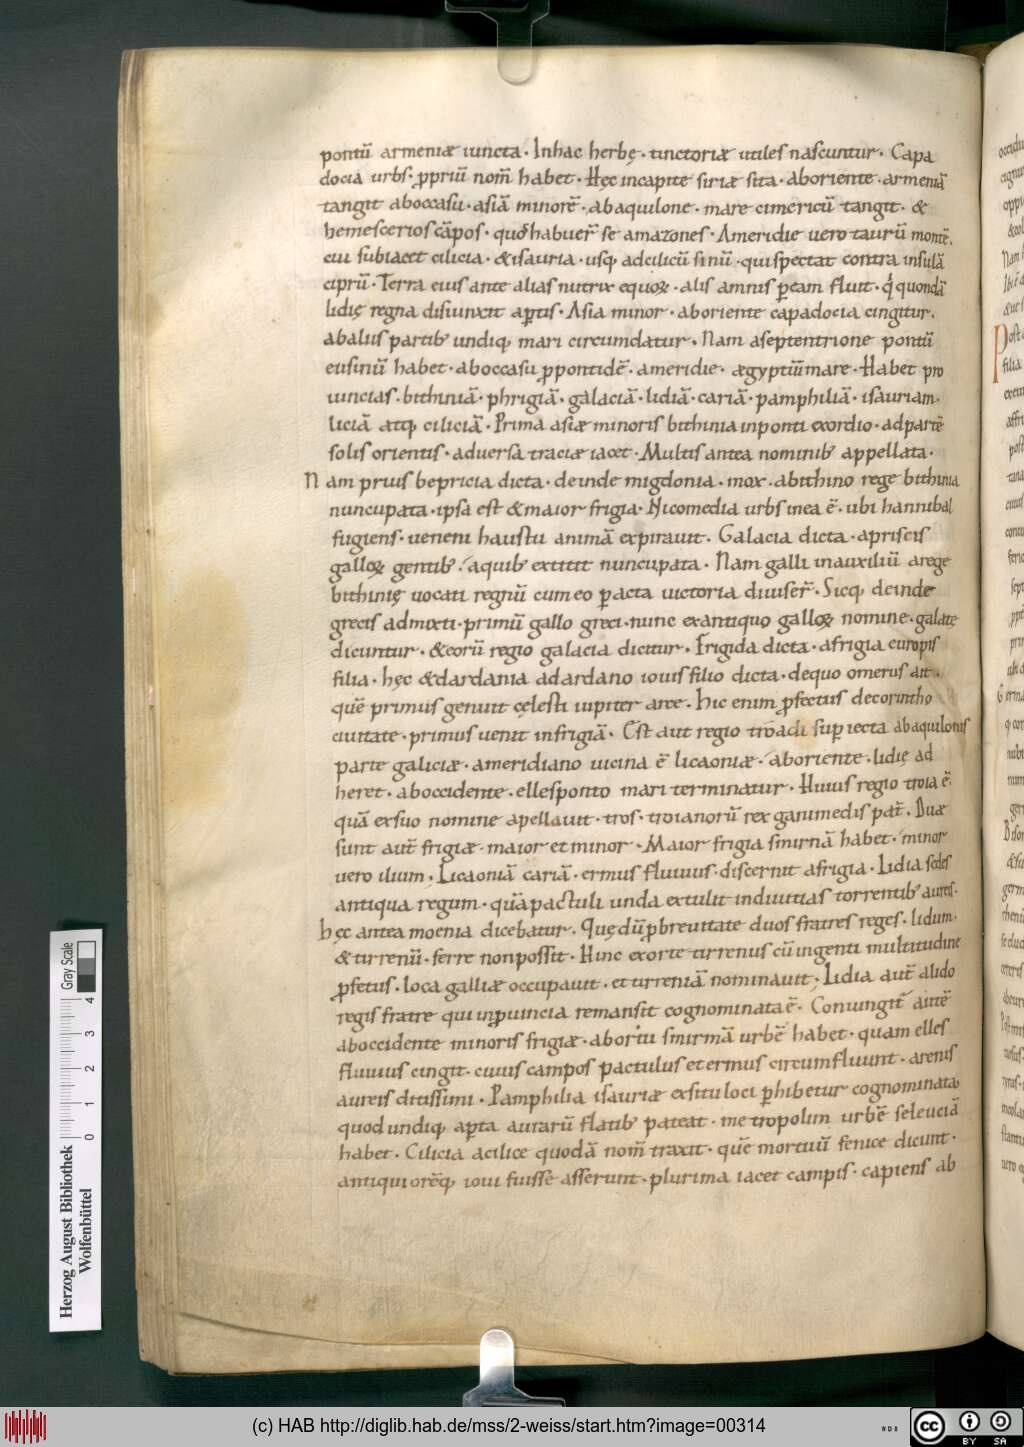 pontū armeniæ iuncta · Inhac herbę · tinctoriæ utiles nascuntur · Capa
docia urbs · ꝓpriū nom̄ habet · Hęc incapite siriæ sita · aboriente · armeniā
tangit aboccasu · asiā minorē · abaquilone · mare cimericū tangit · &
hemescerios cāpos · quos habuer̄ se amazones · Ameridie uero taurū montē ·
cui subiacet cilicia · & isauria · usq; adcilicū sinū · qui spectat contra insulā
ciprū · Terra eius ante alias nutrix equoꝝ · alis amnis ꝑeam fluit · q quondā
lidię regna disiunxit aꝑtis · Asia minor · aboriente capadocia cingitur ·
abalus partib; undiq; mari circumdatur · Nam aseptentrione pontū
eusinū habet · aboccasu ꝓpontidē · ameridie · ægyptiū mare · Habet pro
uincias · bithiniā · phrigiā · galaciā · lidiā · cariā · pamphiliā · isauriam ·
liciā atq; ciliciā · Prima asiæ minoris bithinia inponti exordio · adpartē
solis orientis · aduersa traciæ iacet · Multis antea nominib; appellata ·
N am prius bepricia dicta · deinde migdonia · mox · abithino rege bithinia
nuncupata · ipsa est & maior frigia · Nicomedia urbs inea ē · ubi hannibal
fugiens · ueneni haustu animā expirauit · Galacia dicta · apriscis
galloꝝ gentib; aquib; extitit nuncupata · Nam galli inauxiliū arege
bithinię uocati regnū cum eo ꝑacta uictoria diuiser̄ · Sicq; deinde
grecis admixti · primū gallo greci · nunc exantiquo galloꝝ nomine · galatę
dicuntur · & eorū regio galacia dicitur · Frigida dicta · afrigia europis
filia · hęc & dardania adardano iouis filio dicta · dequo omerus ait ·
quē primus genuit cęlesti iupiter arce · Hic enim ꝓfectus decorintho
ciuitate · primus uenit infrigiā · Est aut regio troadi suꝑiecta abaquilonis
parte galiciæ · ameridiano uicina ē licaoniæ · aboriente · lidię ad
heret · aboccidente · ellesponto mari terminatur · Huius regio troia ē
quā exsuo nomine apellauit · tros · troianorū rex ganimedis pat̄ · Duæ
sunt aut̄ frigiæ · maior et minor · Maior frigia smirnā habet · minor
uero ilium · Licaoniā cariā · ermus fluuius · discernit afrigia · Lidia sedes
antiqua regum · quā pactuli unda extulit indiuitias torrentib; aureis ·
hęc antea moenia dicebatur · Quę dū ꝓbreuitate duos fratres reges · lidum ·
& tirrenū · ferre nonpossit · Hinc exorte tirrenus cū ingenti multitudine
ꝓfetus · loca galliæ occupauit · et tirreniā nominauit · Lidia aut̄ alido
regis fratre qui inꝓuincia remansit cognominata ē · Coniungit̄ autē
aboccidente minoris frigiæ · abortu smirmā urbē habet · quam elles
fluuius cingit · cuius campos pactulus et ermus circumfluunt · arenis
aureis ditissimi · Pamphilia isauriæ exsitu loci ꝑhibetur cognominata
quod undiq; aꝑta aurarū flatib; pateat · metropolim urbē seleuciā
habet · Cilicia acilice quodā nom̄ traxit · quē mortuū fenice dicunt ·
antiquiorēq; ioui fuisse asserunt · plurima iacet campis · capiens ab
Gray Scale
0 1 2 3 4
Herzog August Bibliothek
Wolfenbüttel
(c) HAB http://diglib.hab.de/mss/2-weiss/start.htm?image=00314
cc BY SA